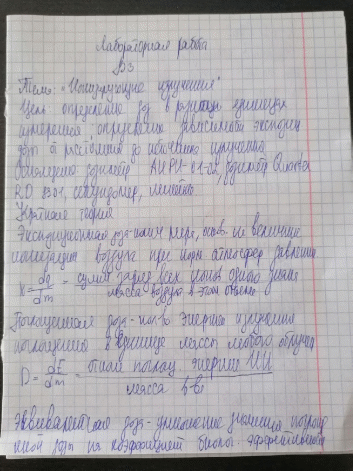 Лабораторная работа
Тема: "Ионизирующие излучения"
Цель: определение доз в разных единицах
измерения; определение зависимости экспозиц
дозы от расстояния до источника излучения
Оснащение: дозиметр АНРИ-01-02, дозиметр Quarta
RD 8901, секундомер, линейка
Краткая теория
Экспозиционная доза-колич мера, основ. на величине
ионизации воздуха при норм атмосфер давлении
X = dQ/dm - сумма заряд. всех ионов одного знака
масса воздуха в этом объеме
Поглощенная доза-кол-во энергии излучения
поглощенно в единице массы любого облучен
D = dE/dm = погл. энергии ИИ
масса в-ва
Эквивалентная доза-умножение значения поглощ
нной дозы на коэффициент биолог. эффективности